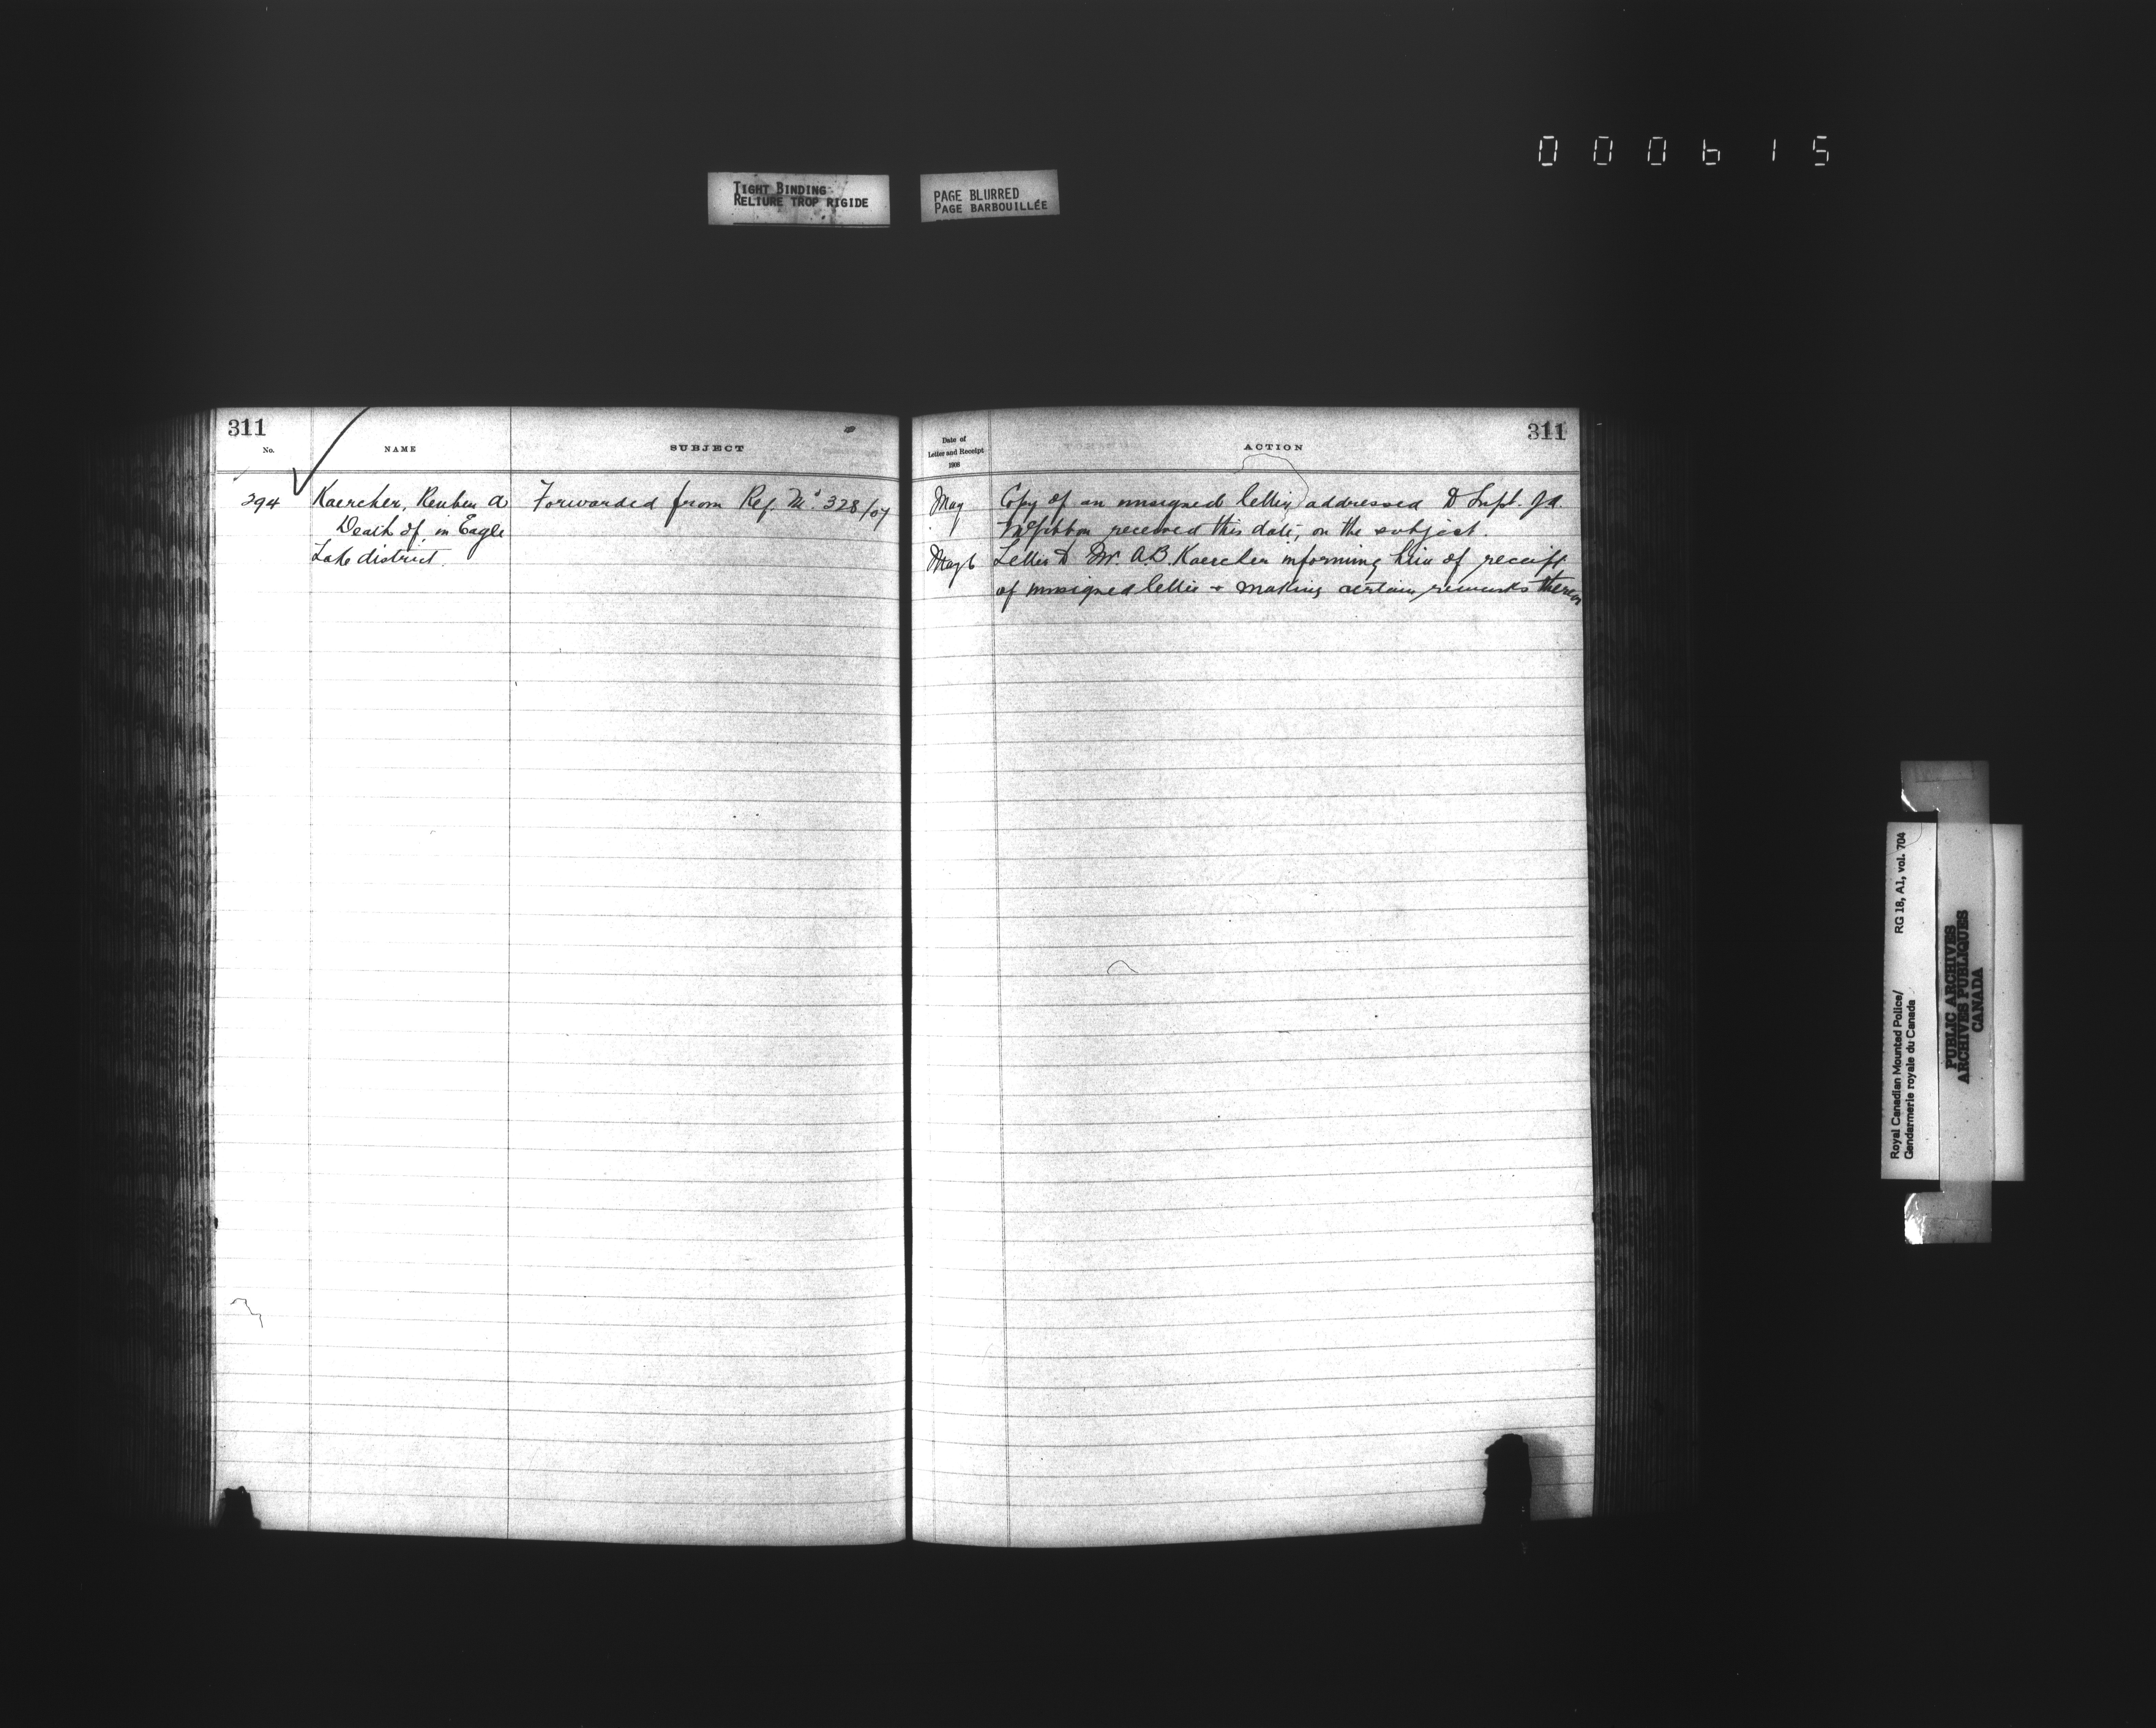 000615
TIGHT BINDING
RELIURE TROP RIGIDE
PAGE BLURRED
PAGE BARBOUILLÉE
311
No.
NAME
SUBJECT
394
Kaercher, Reuben A
Death of, in Eagle
Lake district.
Forwarded from Ref. No. 328/07
Date of
Letter and Receipt
1908
ACTION
311
May
Copy of an unsigned letter addressed to Supt. J.A.
1
McGibbon received this date, on the subject.
May 6
Letter to Mr. A.B. Kaercher informing him of receipt
of unsigned letter + making certain remarks thereon
Royal Canadian Mounted Police/
Gendarmerie royale du Canada
RG 18, A1, vol. 704
PUBLIC ARCHIVES
ARCHIVES PUBLIQUES
CANADA